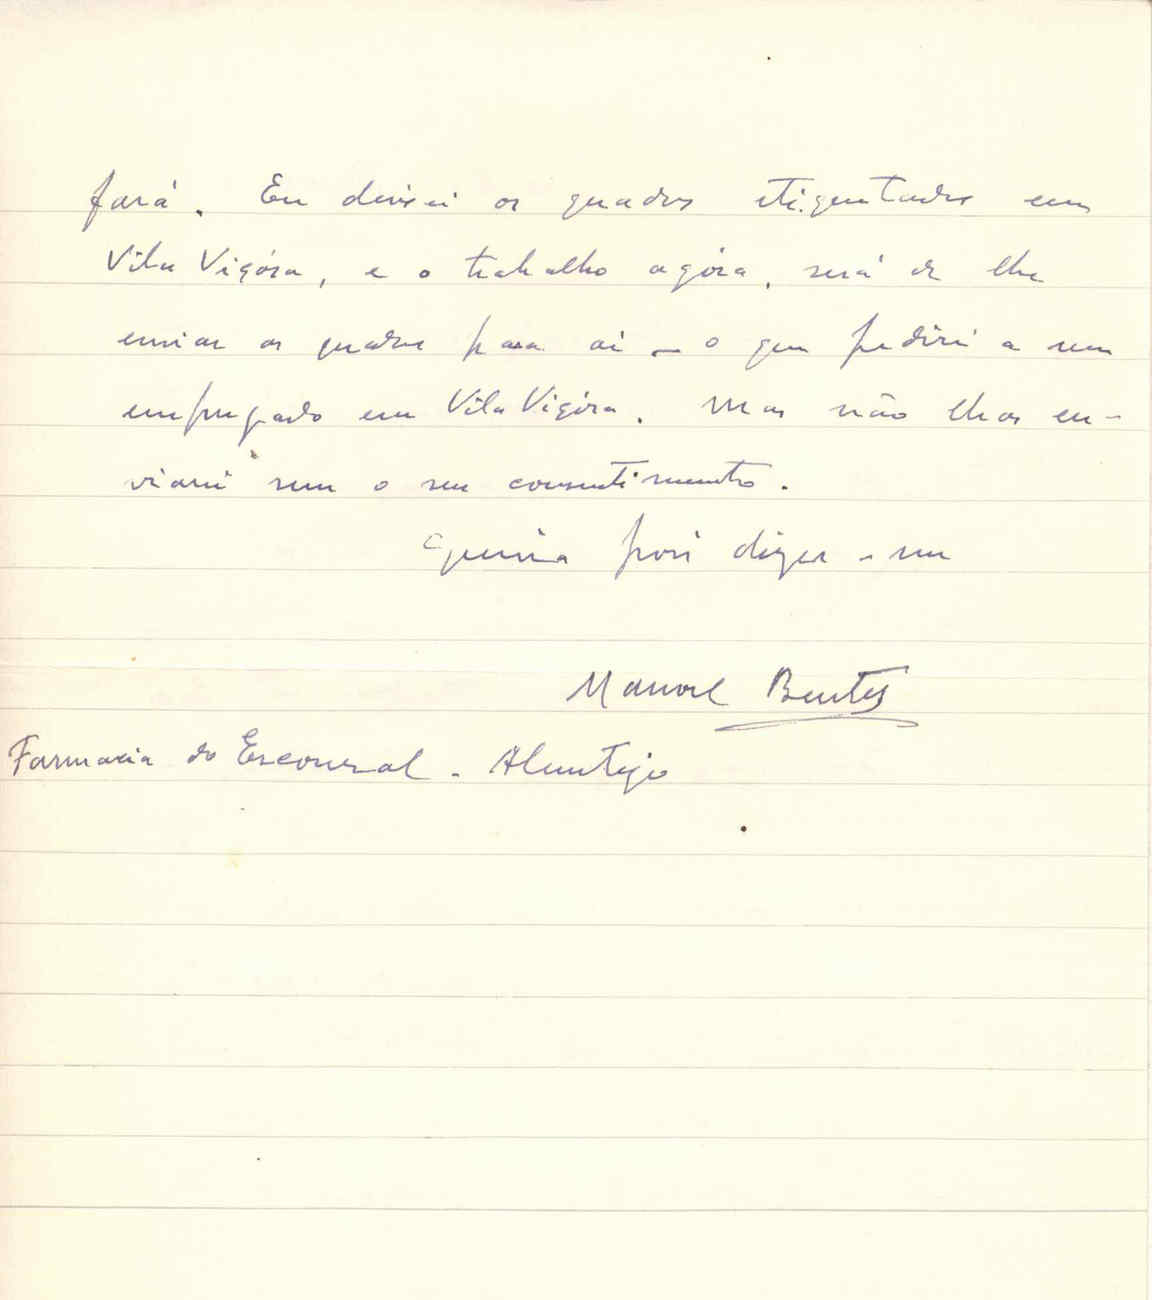 fará. Eu deixei os quadros etiquetados em
Vila Viçósa, e o trabalho agóra, será de lhe
enviar os quadros para aí — o que pedirei a um
empregado em Vila Viçósa. Mas não lhos en-
viarei sem o seu consentimento.
Queira pois dizer-me
Manoel Bentes
Farmacia do Escoural. Alentejo